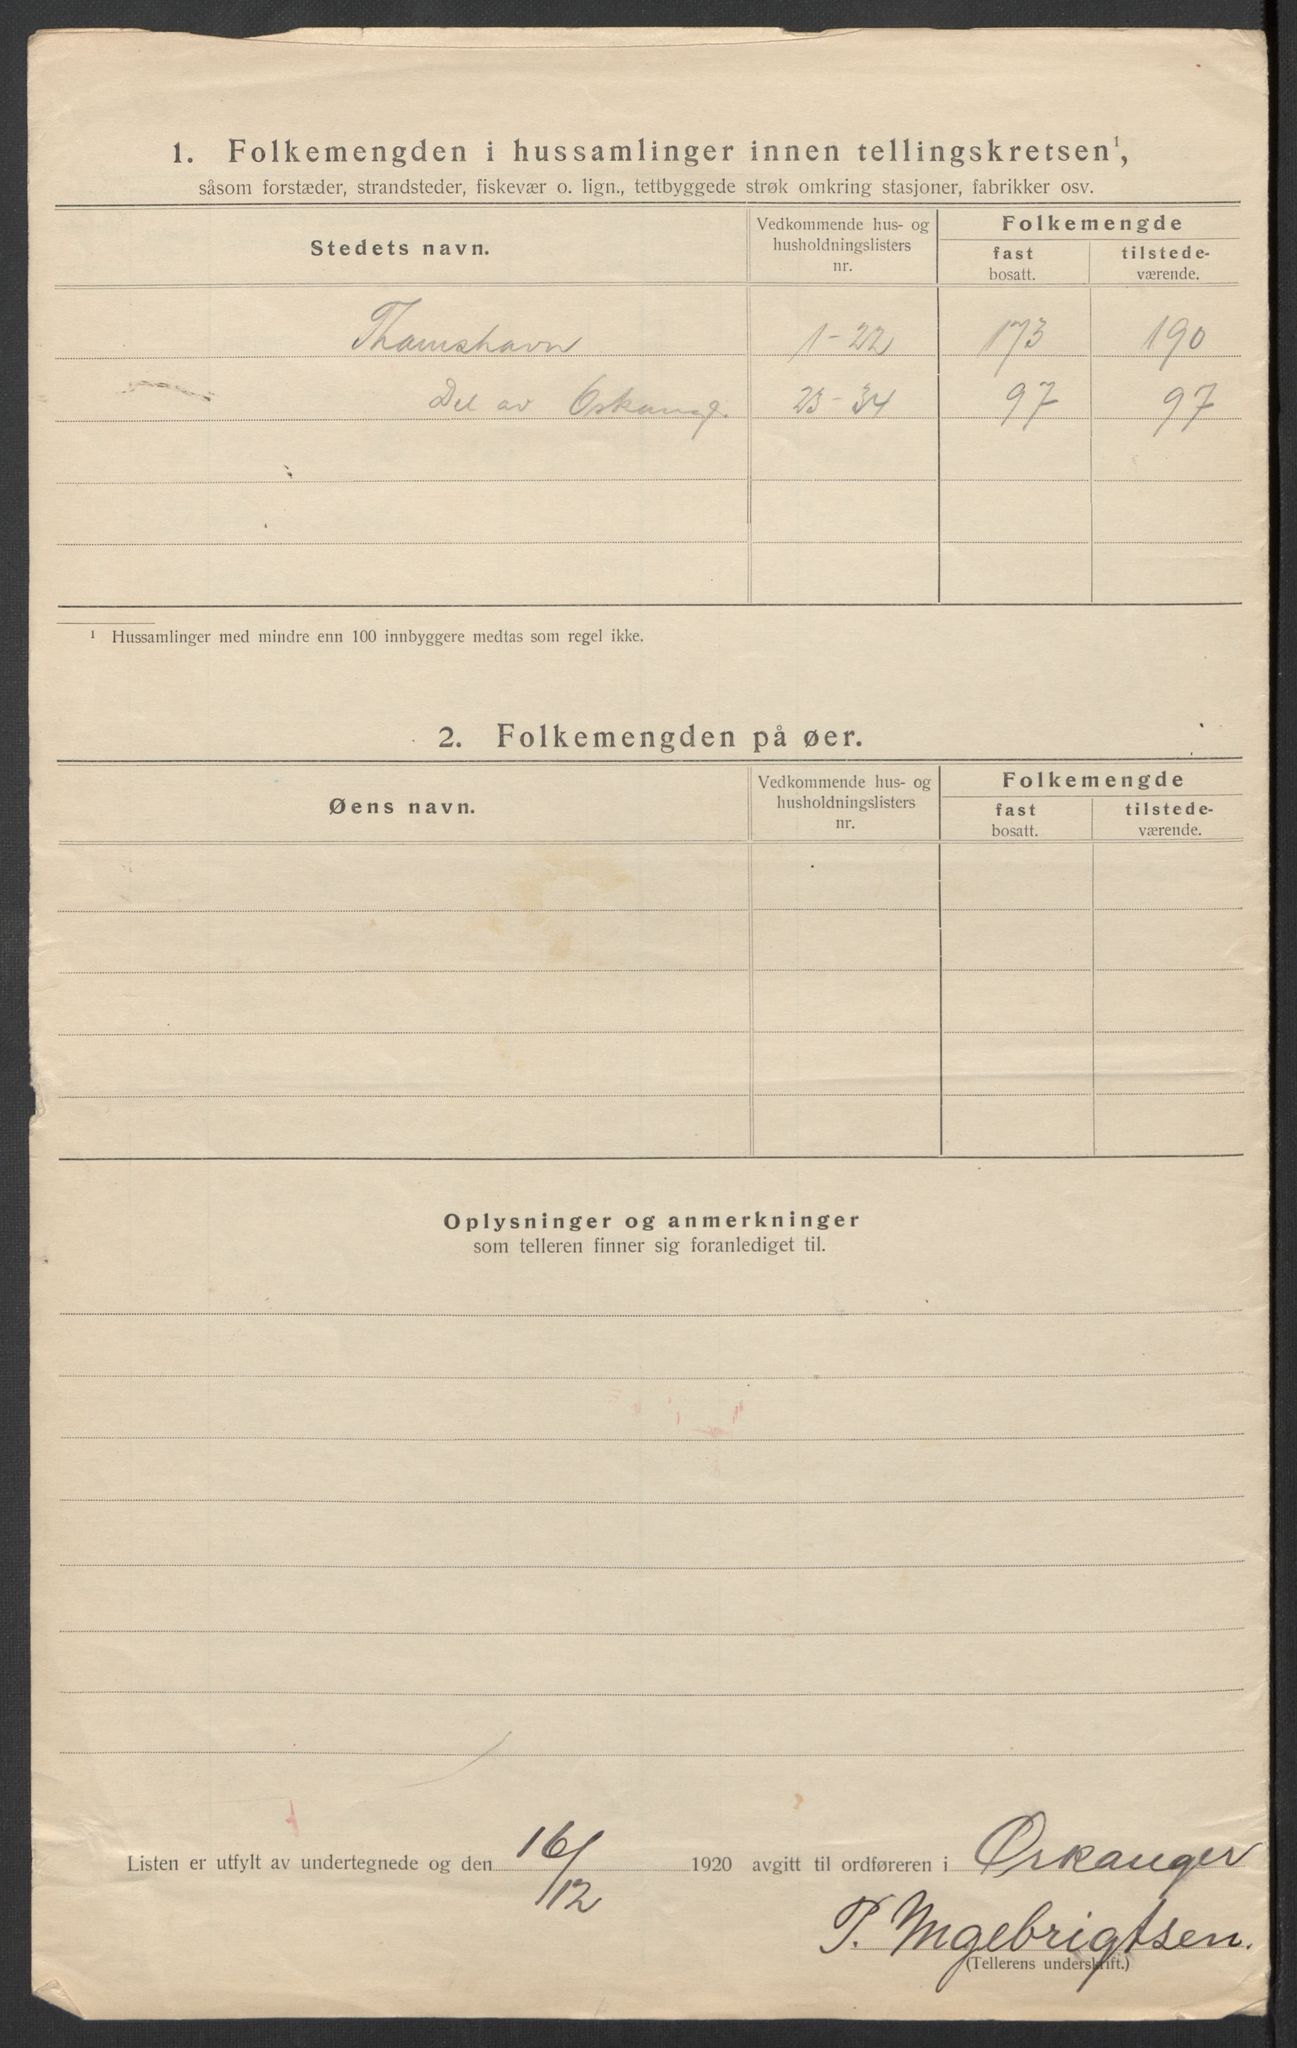 1. Folkemengden i hussamlinger innen tellingskretsen¹,
såsom forstæder, strandsteder, fiskevær o. lign., tettbyggede strøk omkring stasjoner, fabrikker osv.
Stedets navn.
Vedkommende hus- og husholdningslisters nr.
Folkemengde
fast bosatt.
tilstede-værende.
Thamshavn 1-22 173 190
Del av Orkang. 23-34 97 97
¹ Hussamlinger med mindre enn 100 innbyggere medtas som regel ikke.
2. Folkemengden på øer.
Øens navn.
Vedkommende hus- og husholdningslisters nr.
Folkemengde
fast bosatt.
tilstede-værende.
Oplysninger og anmerkninger
som telleren finner sig foranlediget til.
Listen er utfylt av undertegnede og den 16/12 1920 avgitt til ordføreren i Orkanger
P. Ingebrigtsen.
(Tellerens underskrift.)